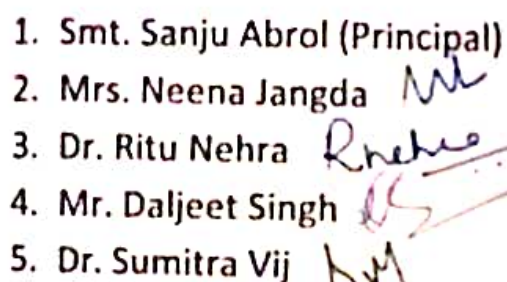 1. Smt. Sanju Abrol (Principal)
2. Mrs. Neena Jangda
3. Dr. Ritu Nehra Rnehra
4. Mr. Daljeet Singh
5. Dr. Sumitra Vij